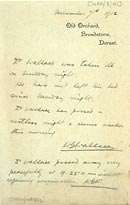 November 7th 1913
Old Orchard,
Broadstone,
Dorset.
Dr Wallace was taken ill
on Sunday night.
He has not left his bed
since Sunday night.
Dr Wallace has passed a
restless night & seems weaker
this morning
W G Wallace
Dr Wallace passed away very
peacefully at 9.25 a.m. without
regaining consciousness. W.G.W.